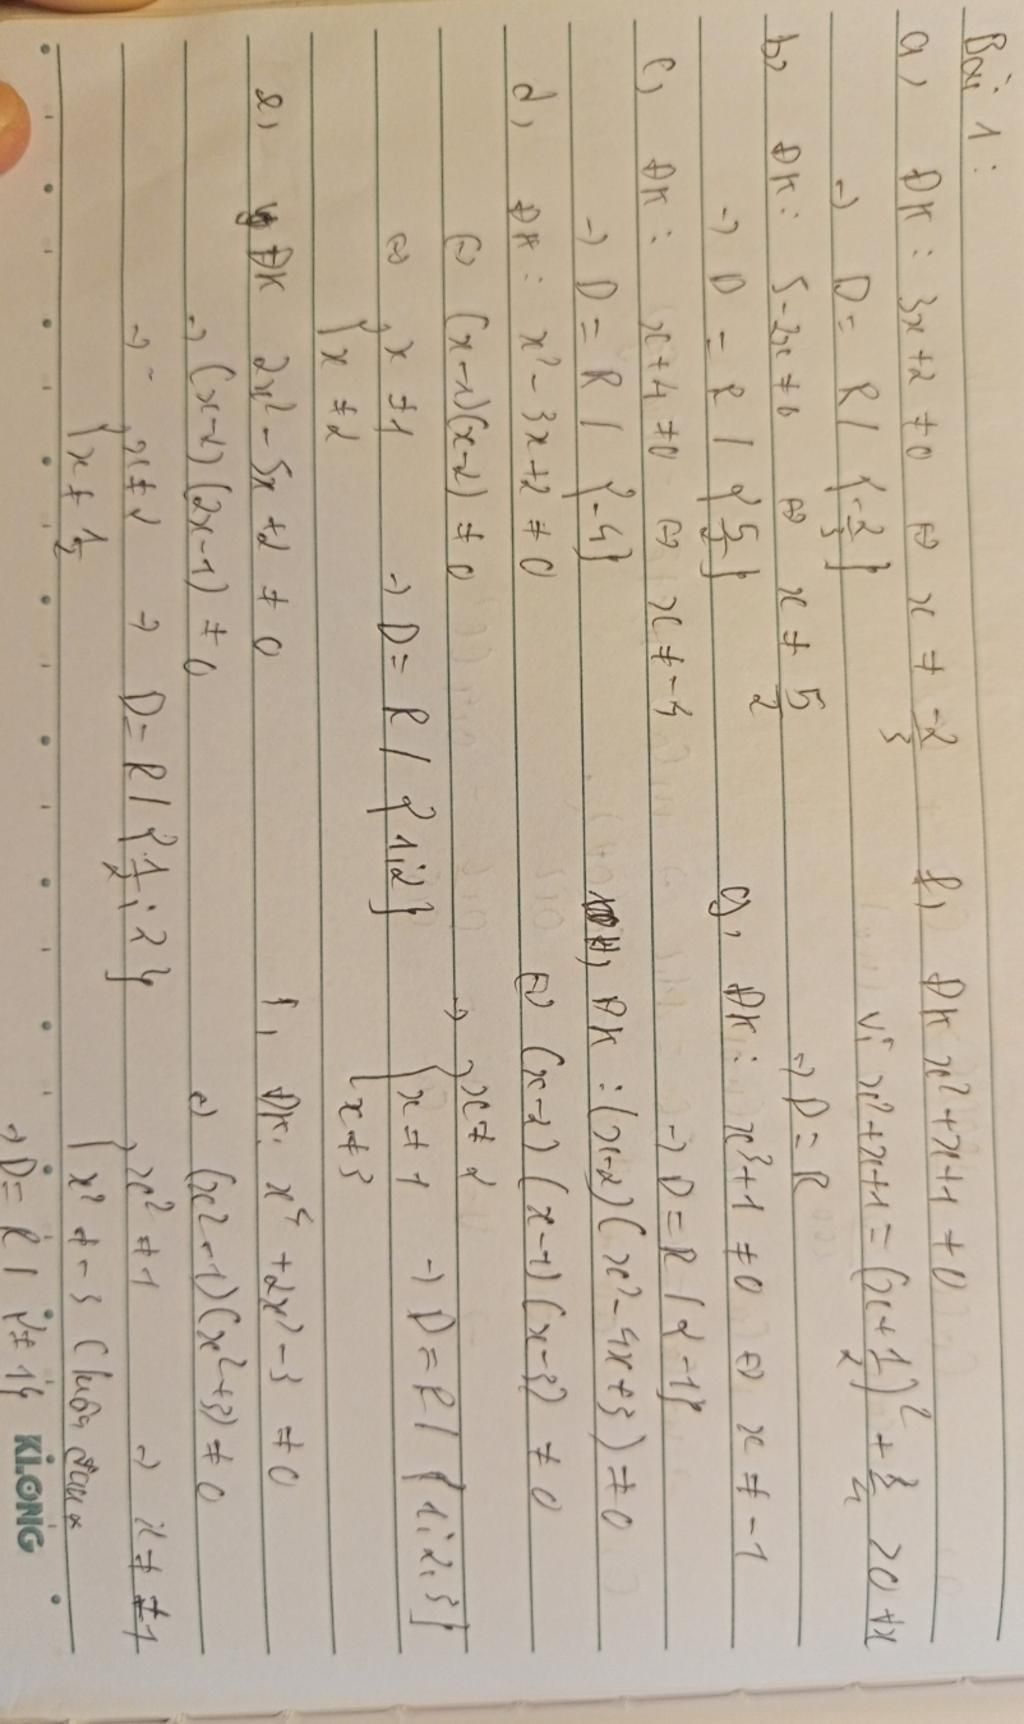 Bài 1:
a, ĐK: 3x+2 ≠0 ⇔ x ≠ -2/3
→ D= R \ {-2/3}
b, ĐK: 5-2x≠0 ⇔ x ≠ 5/2
→ D = R \ {5/2}
c, ĐK: x+4 ≠0 ⇔ x≠-4
→ D= R \ {-4}
d, ĐK: x² - 3x+2 ≠ 0
⇔ (x-1)(x-2) ≠ 0
⇔ {x ≠1 → D= R \ {1;2}
{x ≠2
e, ĐK 2x² - 5x +2 ≠ 0
→ (x-2)(2x-1) ≠ 0
→ {x≠2 → D= R \ {1/2; 2}
{x ≠ 1/2
f, ĐK x²+x+1 ≠0
vì x²+x+1= (x+1/2)² + 3/4 >0 ∀x
→ D= R
g, ĐK: x³+1 ≠0 ⇔ x ≠ -1
→ D=R \ {-1}
H, ĐK: (x-2)(x²-4x+3)≠0
⇔ (x-2)(x-1)(x-3) ≠ 0
→ {x≠2
{x≠1 → D= R \ {1;2;3}
{x≠3
i, ĐK: x⁴ +2x²-3 ≠0
⇔ (x²-1)(x²+3)≠0
{x² ≠1 → x≠ ±1
{x² ≠ -3 (luôn đúng
→ D= R \ {±1}
KLONG